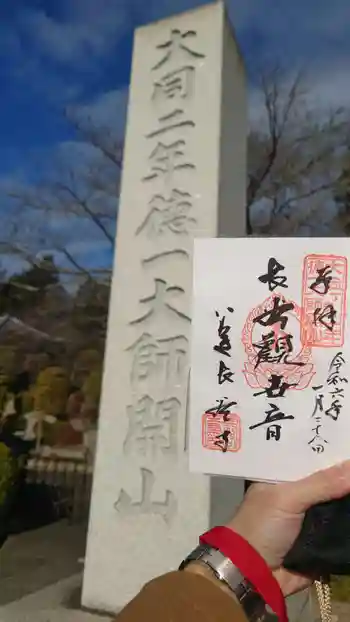 大同二年德一大師開山
奉拝
令和六年
一月二十八日
長谷観世音
長谷寺